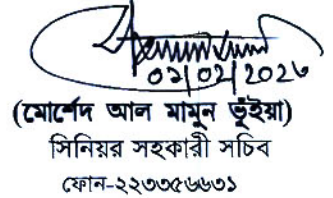 ০২/০২/২০২৬
(মোর্শেদ আল মামুন ভূঁইয়া)
সিনিয়র সহকারী সচিব
ফোন-২২৩৩৫৬৬৩১